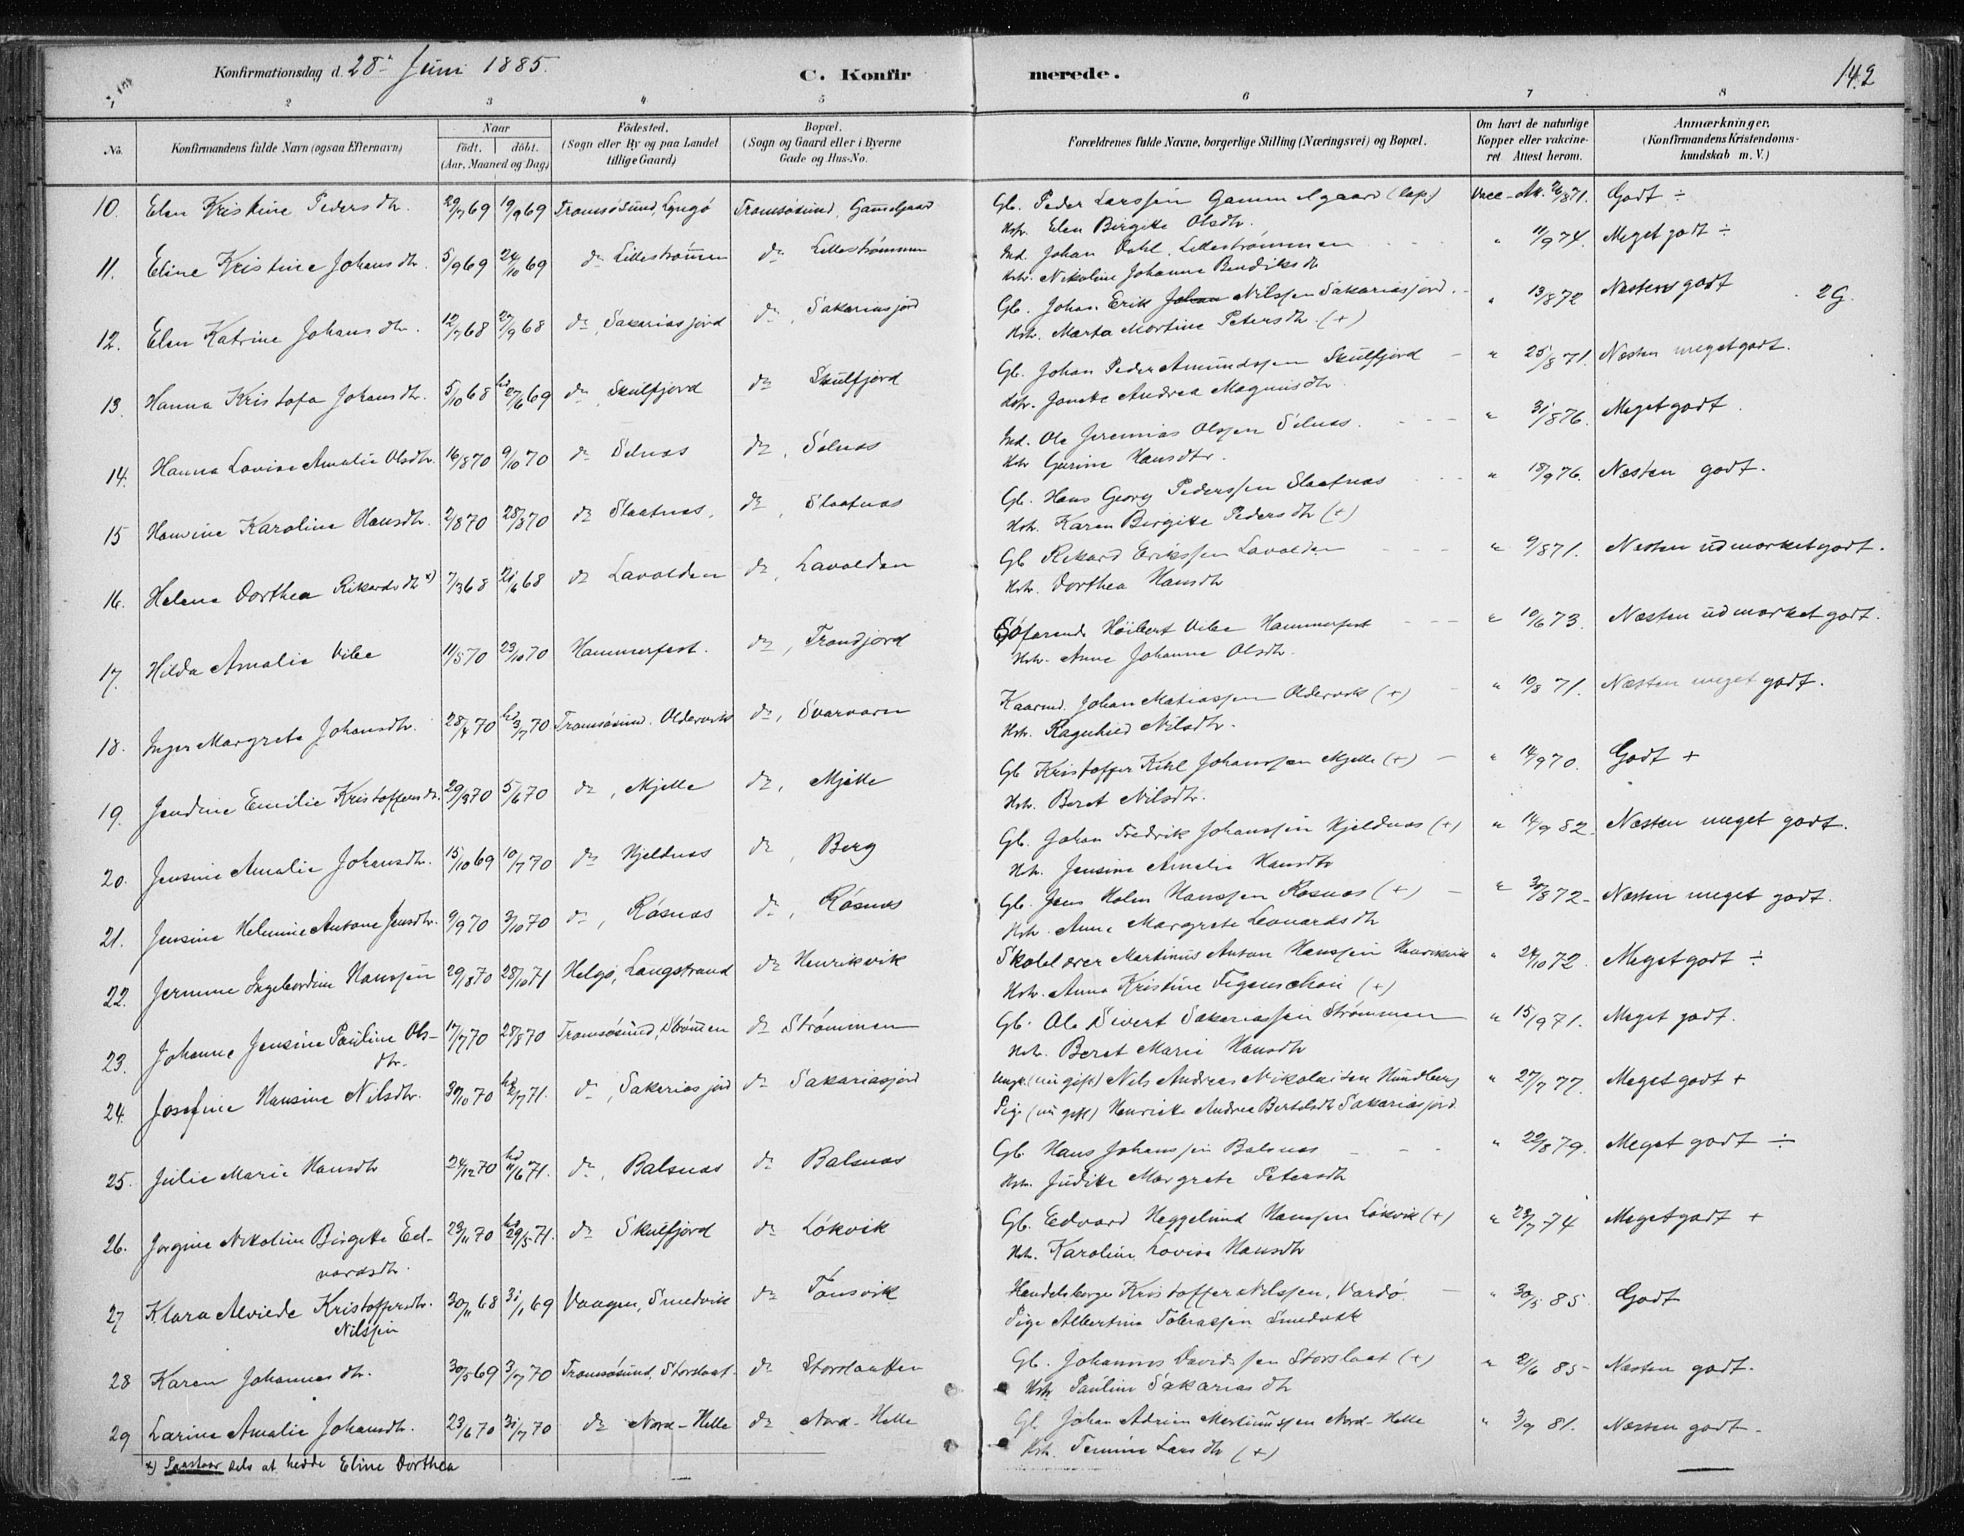 Konfirmationsdag d. 28de Juni 1885.
C. Konfirmerede.
142
2 3 4 5 6 7 8
No.
Konfirmandens fulde Navn (ogsaa Efternavn)
Naar født. døbt. (Aar, Maaned og Dag)
Fødested. (Sogn eller By og paa Landet tillige Gaard)
Bopæl. (Sogn og Gaard eller i Byerne Gade og Hus-No.
Forældrenes fulde Navne, borgerlige Stilling (Næringsvei) og Bopæl.
Om havt de naturlige Kopper eller vakcineret Attest herom.
Anmærkninger. (Konfirmandens Kristendomskundskab m. V.)
10. Elen Kristine Pedersdtr. 29/7 69 19/9 69 Tromsøsund, Lyngø Tromsøsund, Gammelgaard Gb. Peder Larssen Gammelgaard (lap.) Vacc-Att. 26/8 71. Godt ÷
Hstr. Elen Birgitte Olsdtr.
11. Eline Kristine Johansdtr. 5/9 69 24/10 69 do Lillestrømmen do Lillestrømmen Ind. Johan Dahl, Lillestrømmen " 11/9 74. Meget godt ÷
Hstr. Nikoline Johanne Bendiksdtr
12. Elen Katrine Johansdtr. 12/7 68 27/9 68 do, Sakariasjord do, Sakariasjord Gb. Johan Erik Johan Nilssen Sakariasjord. " 13/8 72 Næsten godt . 2 G.
Hstr. Marta Martine Petersdtr. (+)
13. Hanna Kristofa Johansdtr. 5/10 68 hd 27/6 69 do, Skulfjord do Skulfjord Gb. Johan Peder Amundssen Skulfjord " 25/8 71. Næsten meget godt.
Hstr. Janette Andrea Magnusdtr.
14. Hanna Lovise Amalie Olsdtr. 16/8 70 9/10 70 do Selnæs do, Selnæs Ind. Ole Jeremias Olssen Selnæs. " 31/8 76. Meget godt.
Hstr Gurine Hansdtr.
15 Hansine Karoline Hansdtr. 2/8 70 28/8 70 do Slaatnæs, do, Slaatnæs Gb. Hans Georg Pederssen Slaatnæs " 18/9 76. Næsten godt.
Hstr. Karen Birgitte Pedersdtr (+)
16. Helene Dorthea Rikardsdtr x) 7/3 68 21/6 68 do Lavolden do, Lavolden Gb Rikard Erikssen Lavolden " 9/8 71. Næsten udmærket godt.
Hstr. Dorthea Hansdtr
17. Hilda Amalie Vibe 11/5 70 23/10 70 Hammerfest. do, Tromdjord Søfarende Høibert Vibe Hammerfest " 10/6 73. Næsten udmærket godt.
Hstr. Anne Johanne Olsdtr.
18. Inger Margrete Johansdtr. 28/4 70 hd 3/7 70 Tromsøsund. Oldervik do, Svarvaren Kaarmd. Johan Matiassen Oldervik (+) " 10/8 71. Næsten meget godt.
Hstr. Ragnhild Nilsdtr.
19. Jendine Emilie Kristoffersdtr. 29/3 70 5/6 70 do, Mjelle do, Mjelle Gb Kristoffer Kihl Johanssen Mjelle (+) " 14/9 70. Godt +
Hstr. Beret Nilsdtr.
20. Jensine Amalie Johansdtr. 15/10 69 10/7 70 do Kjeldnæs do, Berg Gb. Johan Fredrik Johanssen Kjeldnæs (+) " 14/9 82. Næsten meget godt.
Hstr. Jensine Amalie Hansdtr
21. Jensine Helmine Antone Jensdtr. 9/9 70 3/10 70 do, Røsnæs do, Røsnæs Gb. Jens Holm Hanssen Røsnæs (+) " 30/8 72. Næsten meget godt.
Hstr. Anne Margrete Leonardsdtr
22. Jermine Ingebordine Hanssen 29/8 70 28/10 71 Helgø, Langstrand do Henrikvik Skolelærer Martinus Anton Hanssen Henrikvik " 24/10 72. Meget godt ÷
Hstr. Anna Kristine Figenschou (+)
23. Johanne Jensine Pauline Olsdtr. 17/7 70 28/8 70 Tromsøsund, Strømmen do Strømmen Gb. Ole Sivert Sakariassen Strømmen " 15/9 71. Meget godt.
Hstr. Beret Marie Hansdtr
24. Josefine Hansine Nilsdtr. 30/10 70 hd 2/7 71. do, Sakariasjord do Sakariasjord Ungk. (nu gift) Nils Andreas Nikolaisen Hundberg " 27/7 77. Meget godt +
Pige (nu gift) Henrikke Andrea Bertelsdtr Sakariasjord
25. Julie Marie Hansdtr 24/12 70 hd 11/6 71. do, Balsnæs do Balsnæs Gb. Hans Johanssen Balsnæs " 22/8 79. Meget godt ÷
Hstr. Juditte Margrete Petersdtr
26. Jorgine Nikoline Birgitte Edvardsdtr. 23/11 70 hd 29/5 71. do Skulfjord do Løkvik Gb. Edvard Heggelund Hanssen Løkvik (+) " 23/7 74 Meget godt +
Hstr. Karoline Lovise Hansdtr
27 Klara Alviede Kristoffersdtr. Nilssen 30/11 68 31/1 69 Vaagen, Smedvik do Tønsvik Handelsborger Kristoffer Nilssen, Vardø. " 30/5 85. Godt
Pige Albertine Tobiassen Smedvik
28 Karen Johannesdtr. 30/5 69 3/7 70 Tromsøsund, Storslaat. do Storslaatten Gb. Johannes Davidssen Storslaat (+) " 21/6 85 Næsten godt.
Hstr Pauline Sakariasdtr
29 Larine Amalie Johansdtr. 23/6 70 31/7 70 do Nord-Helle do Nord-Helle Gb. Johan Adrian Martinussen Nord-Helle " 3/9 81. Næsten godt.
Hstr. Temine Larsdtr (+)
x) Paastaar selv at hedde Eline Dorthea